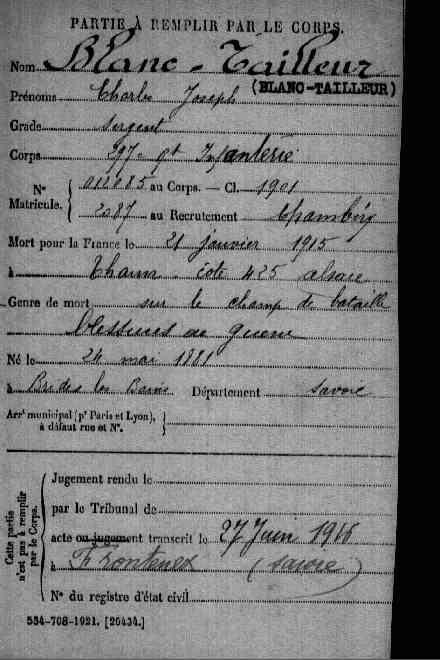 PARTIE À REMPLIR PAR LE CORPS.
Nom Blanc-Tailleur
(BLANC-TAILLEUR)
Prénoms Charles Joseph
Grade sergent
Corps 97e gt Infanterie
Nº Matricule. { 012085 au Corps. — Cl. 1901
2087 au Recrutement Chambéry
Mort pour la France le 21 janvier 1915
à Thann - côte 425 alsace
Genre de mort sur le champ de bataille
blessures de guerre
Né le 24 mai 1881
à Brides les Bains Département Savoie
Arrt municipal (pr Paris et Lyon), à défaut rue et Nº. }
Cette partie n'est pas à remplir par le Corps. {
Jugement rendu le
par le Tribunal de
acte ou jugement transcrit le 27 Juin 1916
à Frontenex (Savoie)
Nº du registre d'état civil
534-708-1921. [26434.]